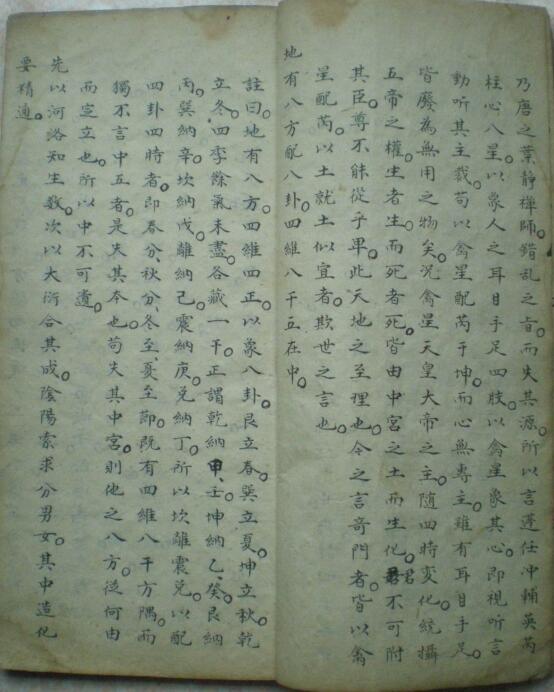 乃唐之葉靜禪師錯亂之旨而失其源所以言蓬任冲輔英芮
柱心八星以象人之耳目手足四肢以禽星象其心即視听言
動听其主裁苟以禽星配芮于坤而心無專主雖有耳目手足
皆廢為無用之物矣况禽星天皇大帝之主隨四時変化統攝
五帝之權生者生而死者死皆由中宮之土而生化君不可附
其臣尊不能從乎卑此天地之至理也今之言奇門者皆以禽
星配芮以土就土似宜者欺世之言也
地有八方配八卦四維八干五在中
註曰地有八方四維四正以象八卦艮立春巽立夏坤立秋乾
立冬四季餘氣未盡各藏一干正謂乾納甲壬坤納乙癸艮納
丙巽納辛坎納戊離納己震納庚兌納丁所以坎離震兌以配
四卦四時者即春分秋分冬至夏至節既有四維八干方隅而
獨不言中五者是失其本也苟失其中宮則他之八方從何由
而定立也所以中不可遺
先以河洛知生数次以大衍合其成陰陽索求分男女其中造化
要精通